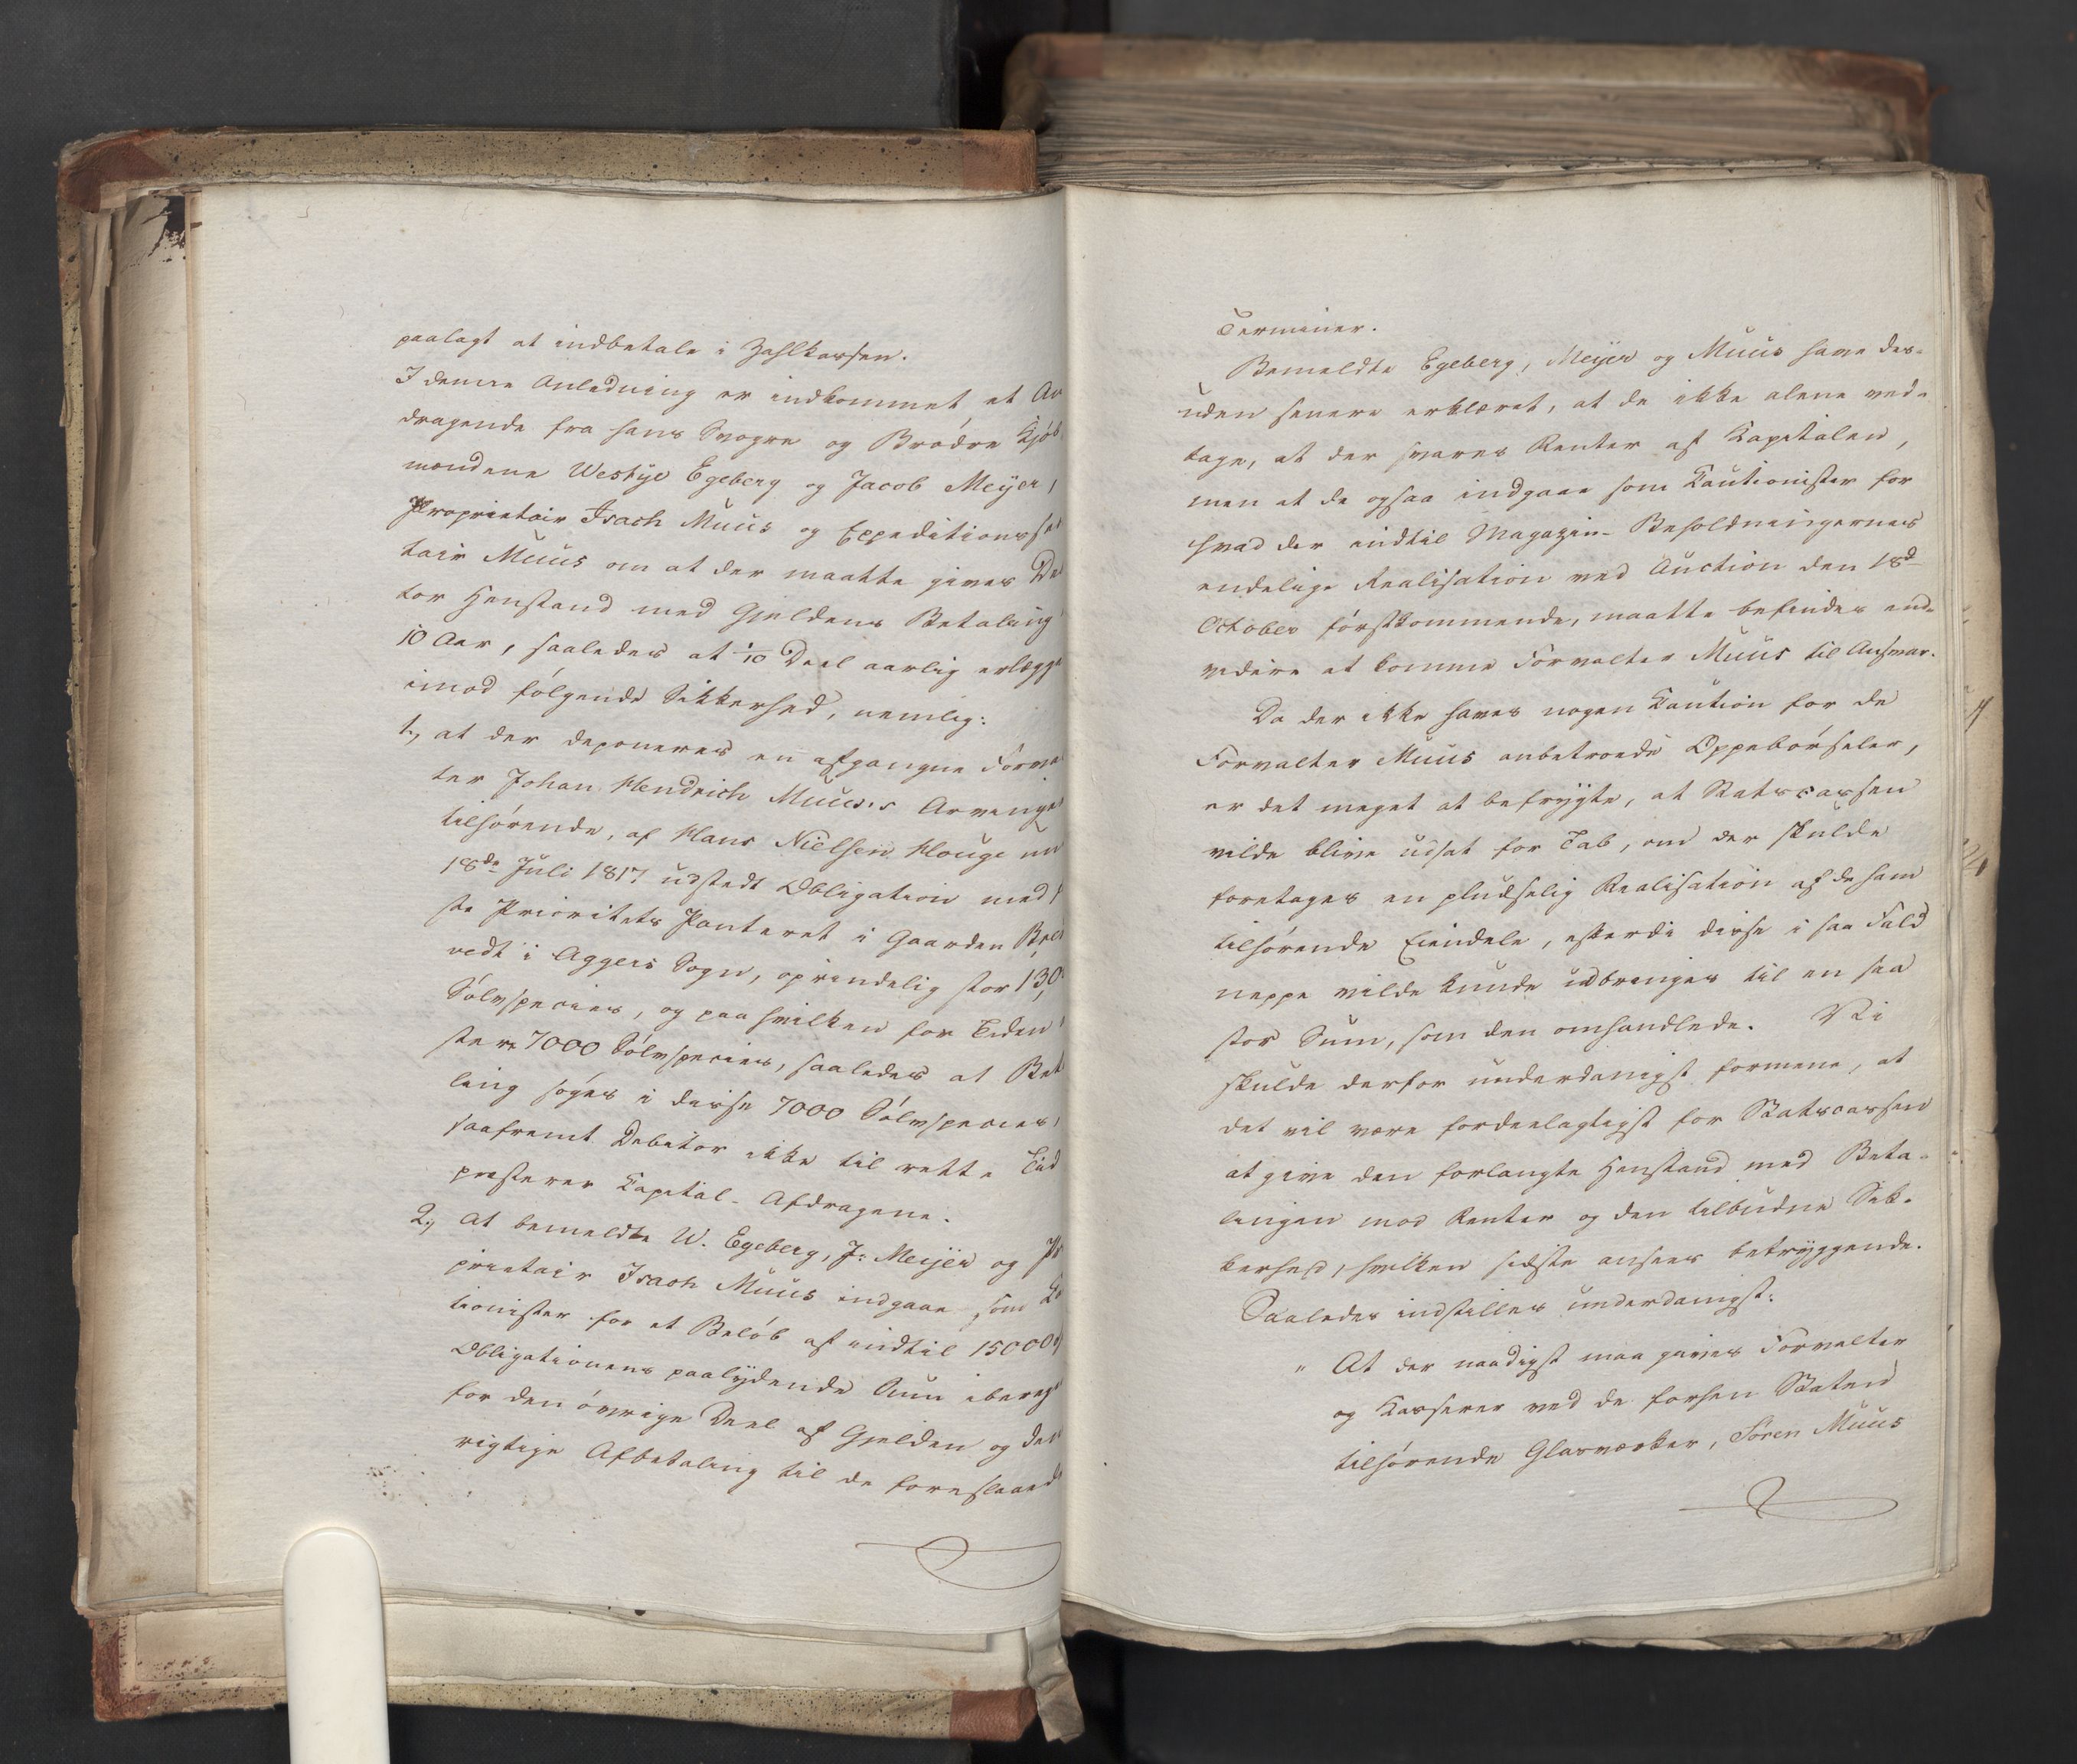 paalagt at indbetale i Zahlkassen.
I denne Anledning er indkommet et An
dragende fra hans Svogre og Brødre Kjøb
mændene Westye Egeberg og Jacob Meijer,
Proprietair Isach Muus og Expeditionsse
tair Muus om at der maatte gives De
tor Henstand med Gjeldens Betaling
10 Aar, saaledes at 1/10 Deel aarlig erlægge
imod følgende Sikkerhed, nemlig:
1., at der deponeres en afgangne Forva
ter Johan Hendrich Muus's Arvinge
tilhørende, af Hans Nielsen Houge un
18de Juli 1817 udstedt Obligation med
ste Prioritets Panteret i Gaarden
vedt i Aggers Sogn, oprindelig stor 130
Sølvspecies, og paa hvilken for Tiden
stere 7000 Sølvspecies, saaledes at Bet
ling søges i disse 7000 Sølvspecies,
saafremt Debitor ikke til rette Tid
præsterer Kapital-Afdragene.
2., At bemeldte W. Egeberg, J: Meijer og Pr
prietair Isach Muus indgaae som Ka
tionister for et Beløb af indtil 15000
Obligationens paalydende Sum ibereg
for den øvrige Deel af Gjelden og den
rigtige Afbetaling til de foreslaaede
Terminer.
Bemeldte Egeberg, Meijer og Muus have des-
uden senere erklæret, at de ikke alene ved-
tage, at der svares Renter af Kapitalen,
men at de ogsaa indgaae som Kautionister for
hvad der indtil Magazin-Beholdningernes
endelige Realisation ved Auction den 18d
October førstkommende, maatte befindes end-
videre at komme Forvalter Muus til Ansvar.
Da der ikke haves nogen Kaution for de
Forvalter Muus anbetroede Oppebørseler,
er det meget at befrygte, at Statscassen
vilde blive udsat for Tab, om der skulde
foretages en pludselig Realisation af de ham
tilhørende Eiendele, efterdi disse i saa Fald
neppe vilde kunde udbringes til en saa
stor Sum, som den omhandlede. Vi
skulde derfor underdanigst formene, at
det vil være fordeelagtigst for Statscassen
at give den forlangte Henstand med Beta-
lingen mod Renter og den tilbudne Sik-
kerhed, hvilken sidste ansees betryggende.
Saaledes indstilles underdanigst:
" At der naadigst maa gives Forvalter
og Kasserer ved de forhen Staten
tilhørende Glasværker, Søren Muus